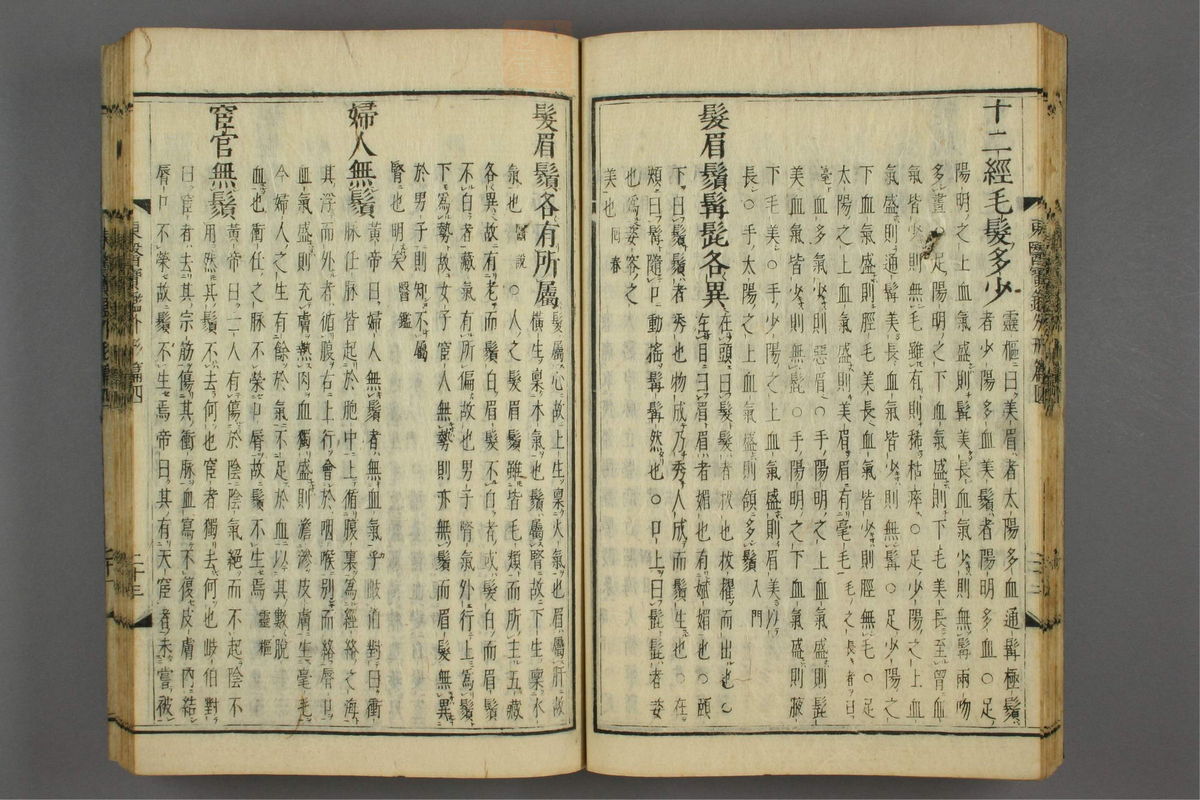 十二經毛髮多少 靈樞曰美眉者太陽多血通髯極鬚
者少陽多血美鬚者陽明多血○足
陽明之上血氣盛則髯美長血氣少則無髯兩吻
多畫○足陽明之下血氣盛則下毛美長至胷血
氣皆少則無毛雖有則稀枯瘁○足少陽之上血
氣盛則通髯美長血氣皆少則無髯○足少陽之
下血氣盛則脛毛美長血氣皆少則脛無毛○足
太陽之上血氣盛則美眉眉有毫毛毛之長者曰
毫血多氣少則惡眉○手陽明之上血氣盛則髭
美血氣皆少則無髭○手陽明之下血氣盛則腋
下毛美○手少陽之上血氣盛則眉美
長○手太陽之上血氣盛則頷多鬚 入門
髮眉鬚髯髭各異 在頭曰髮髮者拔也拔擢而出也○
在目曰眉眉者媚也有嫵媚也○頤
下曰鬚鬚者秀也物成乃秀人成而鬚生也○在
頰曰髯隨口動搖髯髯然也○口上曰髭髭者姿
也為姿容之
美也 回春
髮眉鬚各有所屬 髮屬心故上生稟火氣也眉屬肝故
橫生稟木氣也鬚屬腎故下生稟水
氣也 ○人之髮眉鬚雖皆毛類而所主五藏
各異故有老而鬚白眉髮不白者或髮白而眉鬚
不白者藏氣有所偏故也男子腎氣外行上為鬚
下為勢故女子宦人無勢則亦無鬚而眉髮無異
於男子則知不屬
腎也明矣 醫鑑
婦人無鬚 黃帝曰婦人無鬚者無血氣乎歧伯對曰衝
脉任脉皆起於胞中上循腹裏為經絡之海
其浮而外者循腹右上行會於咽喉別而絡脣口
血氣盛則充膚熱肉血獨盛則澹滲皮膚生毫毛
今婦人之生有餘於氣不足於血以其數脫
血也衝任之脉不榮口脣故鬚不生焉 靈樞
宦官無鬚 黃帝曰士人有傷於陰陰氣絕而不起陰不
用然其鬚不去何也宦者獨去何也歧伯對
曰宦者去其宗筋傷其衝脉血瀉不復皮膚內結
脣口不榮故鬚不生焉帝曰其有天宦者未嘗被